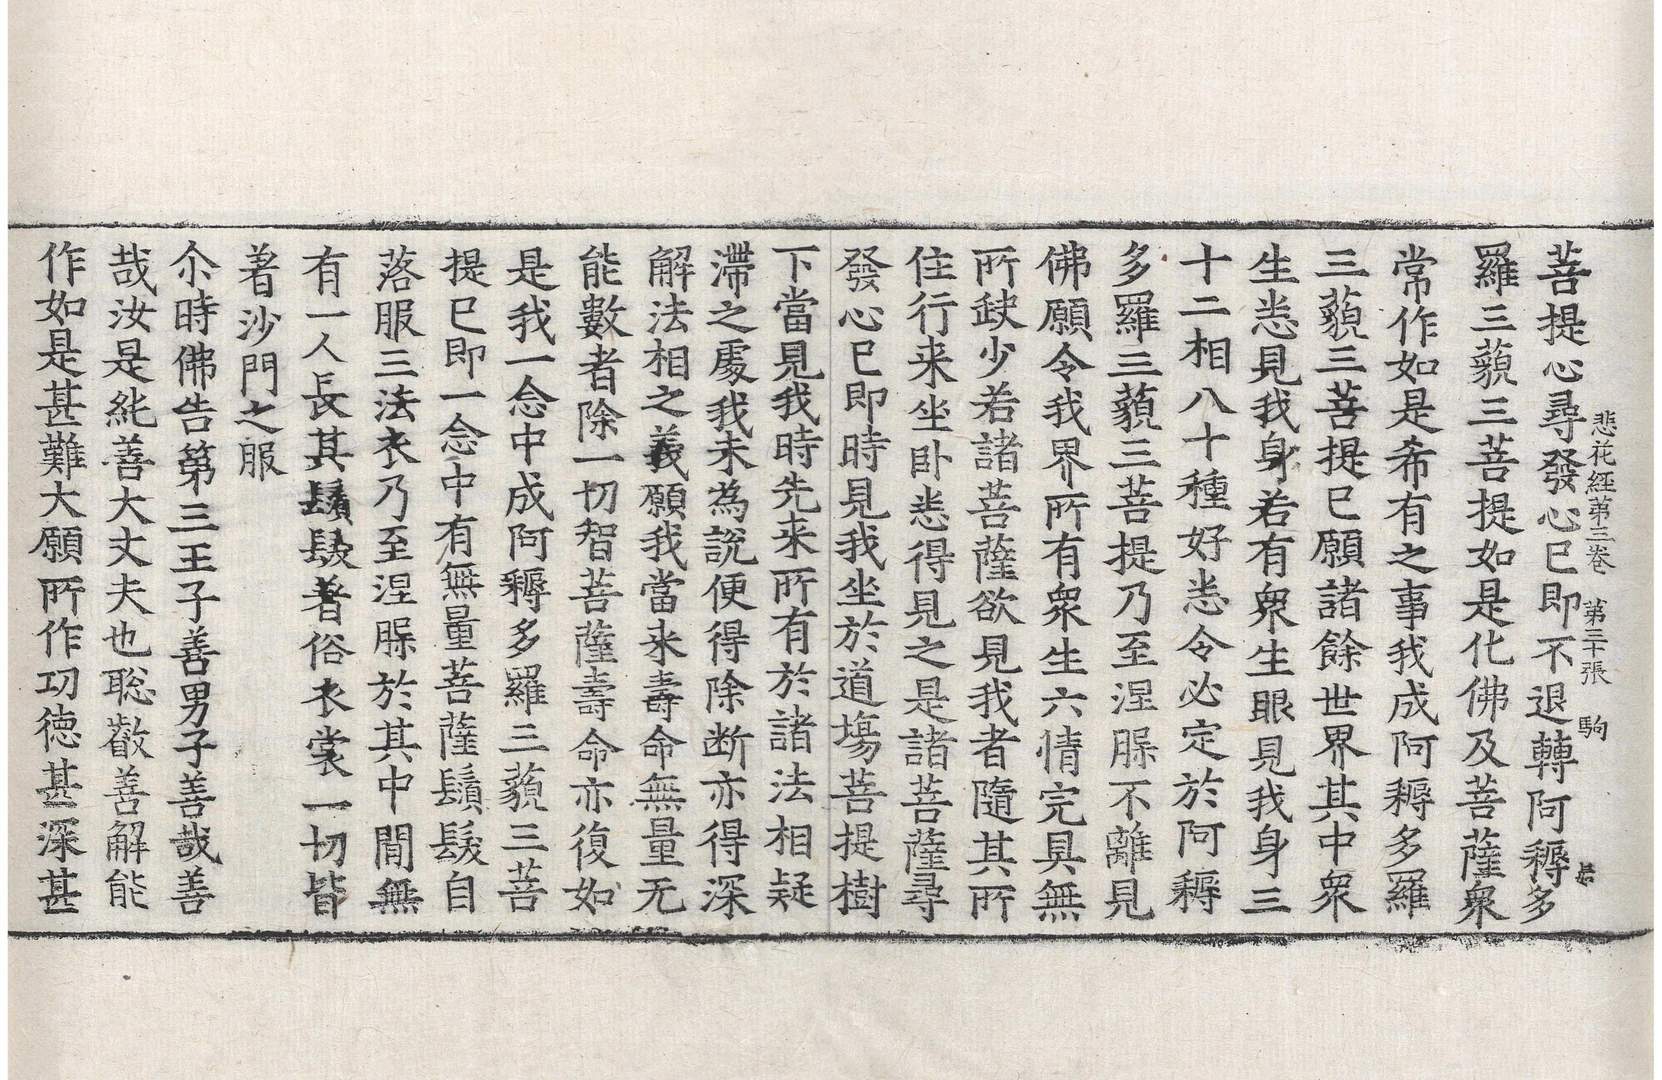 悲花經第三卷 第三十張 駒
菩提心尋發心已即不退轉阿耨多
羅三藐三菩提如是化佛及菩薩衆
常作如是希有之事我成阿耨多羅
三藐三菩提已願諸餘世界其中衆
生悉見我身若有衆生眼見我身三
十二相八十種好悉令必定於阿耨
多羅三藐三菩提乃至涅槃不離見
佛願令我界所有衆生六情完具無
所缺少若諸菩薩欲見我者隨其所
住行来坐卧悉得見之是諸菩薩尋
發心已即時見我坐於道場菩提樹
下當見我時先来所有於諸法相疑
滯之處我未為說便得除断亦得深
解法相之義願我當来壽命無量无
能數者除一切智菩薩壽命亦復如
是我一念中成阿耨多羅三藐三菩
提已即一念中有無量菩薩鬚髮自
落服三法衣乃至涅槃於其中間無
有一人長其鬚髮著俗衣裳一切皆
著沙門之服
尒時佛告第三王子善男子善哉善
哉汝是純善大丈夫也聡叡善解能
作如是甚難大願所作功德甚深甚